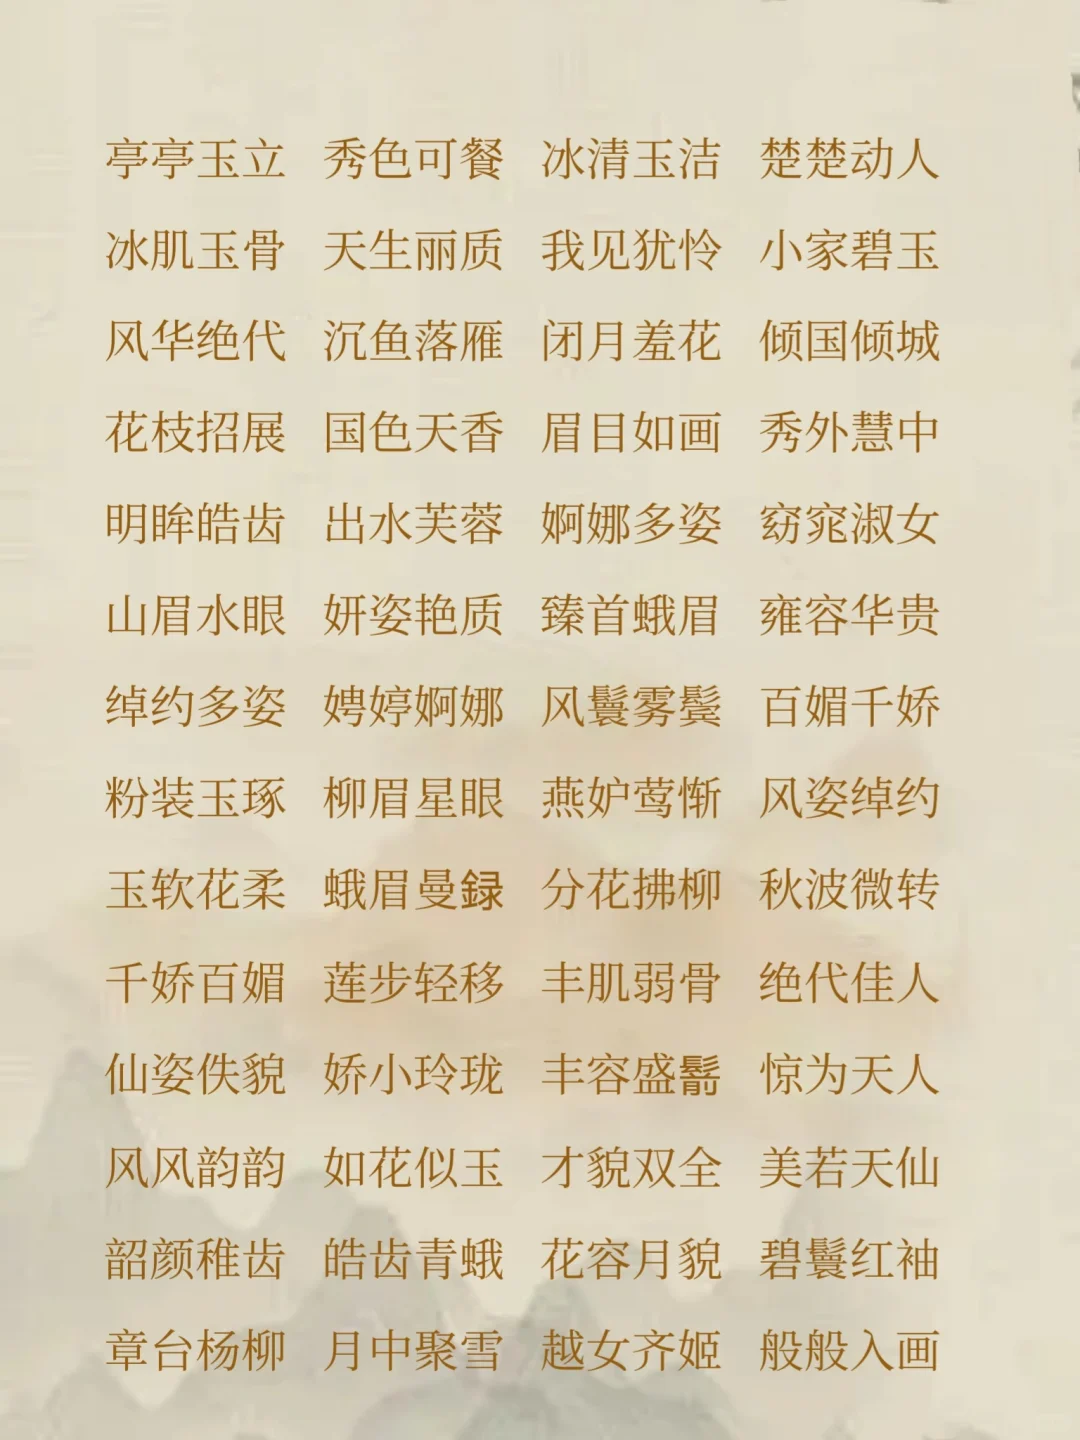 亭亭玉立 秀色可餐 冰清玉洁 楚楚动人
冰肌玉骨 天生丽质 我见犹怜 小家碧玉
风华绝代 沉鱼落雁 闭月羞花 倾国倾城
花枝招展 国色天香 眉目如画 秀外慧中
明眸皓齿 出水芙蓉 婀娜多姿 窈窕淑女
山眉水眼 妍姿艳质 臻首蛾眉 雍容华贵
绰约多姿 娉婷婀娜 风鬟雾鬓 百媚千娇
粉装玉琢 柳眉星眼 燕妒莺惭 风姿绰约
玉软花柔 蛾眉曼録 分花拂柳 秋波微转
千娇百媚 莲步轻移 丰肌弱骨 绝代佳人
仙姿佚貌 娇小玲珑 丰容盛鬋 惊为天人
风风韵韵 如花似玉 才貌双全 美若天仙
韶颜稚齿 皓齿青蛾 花容月貌 碧鬟红袖
章台杨柳 月中聚雪 越女齐姬 般般入画